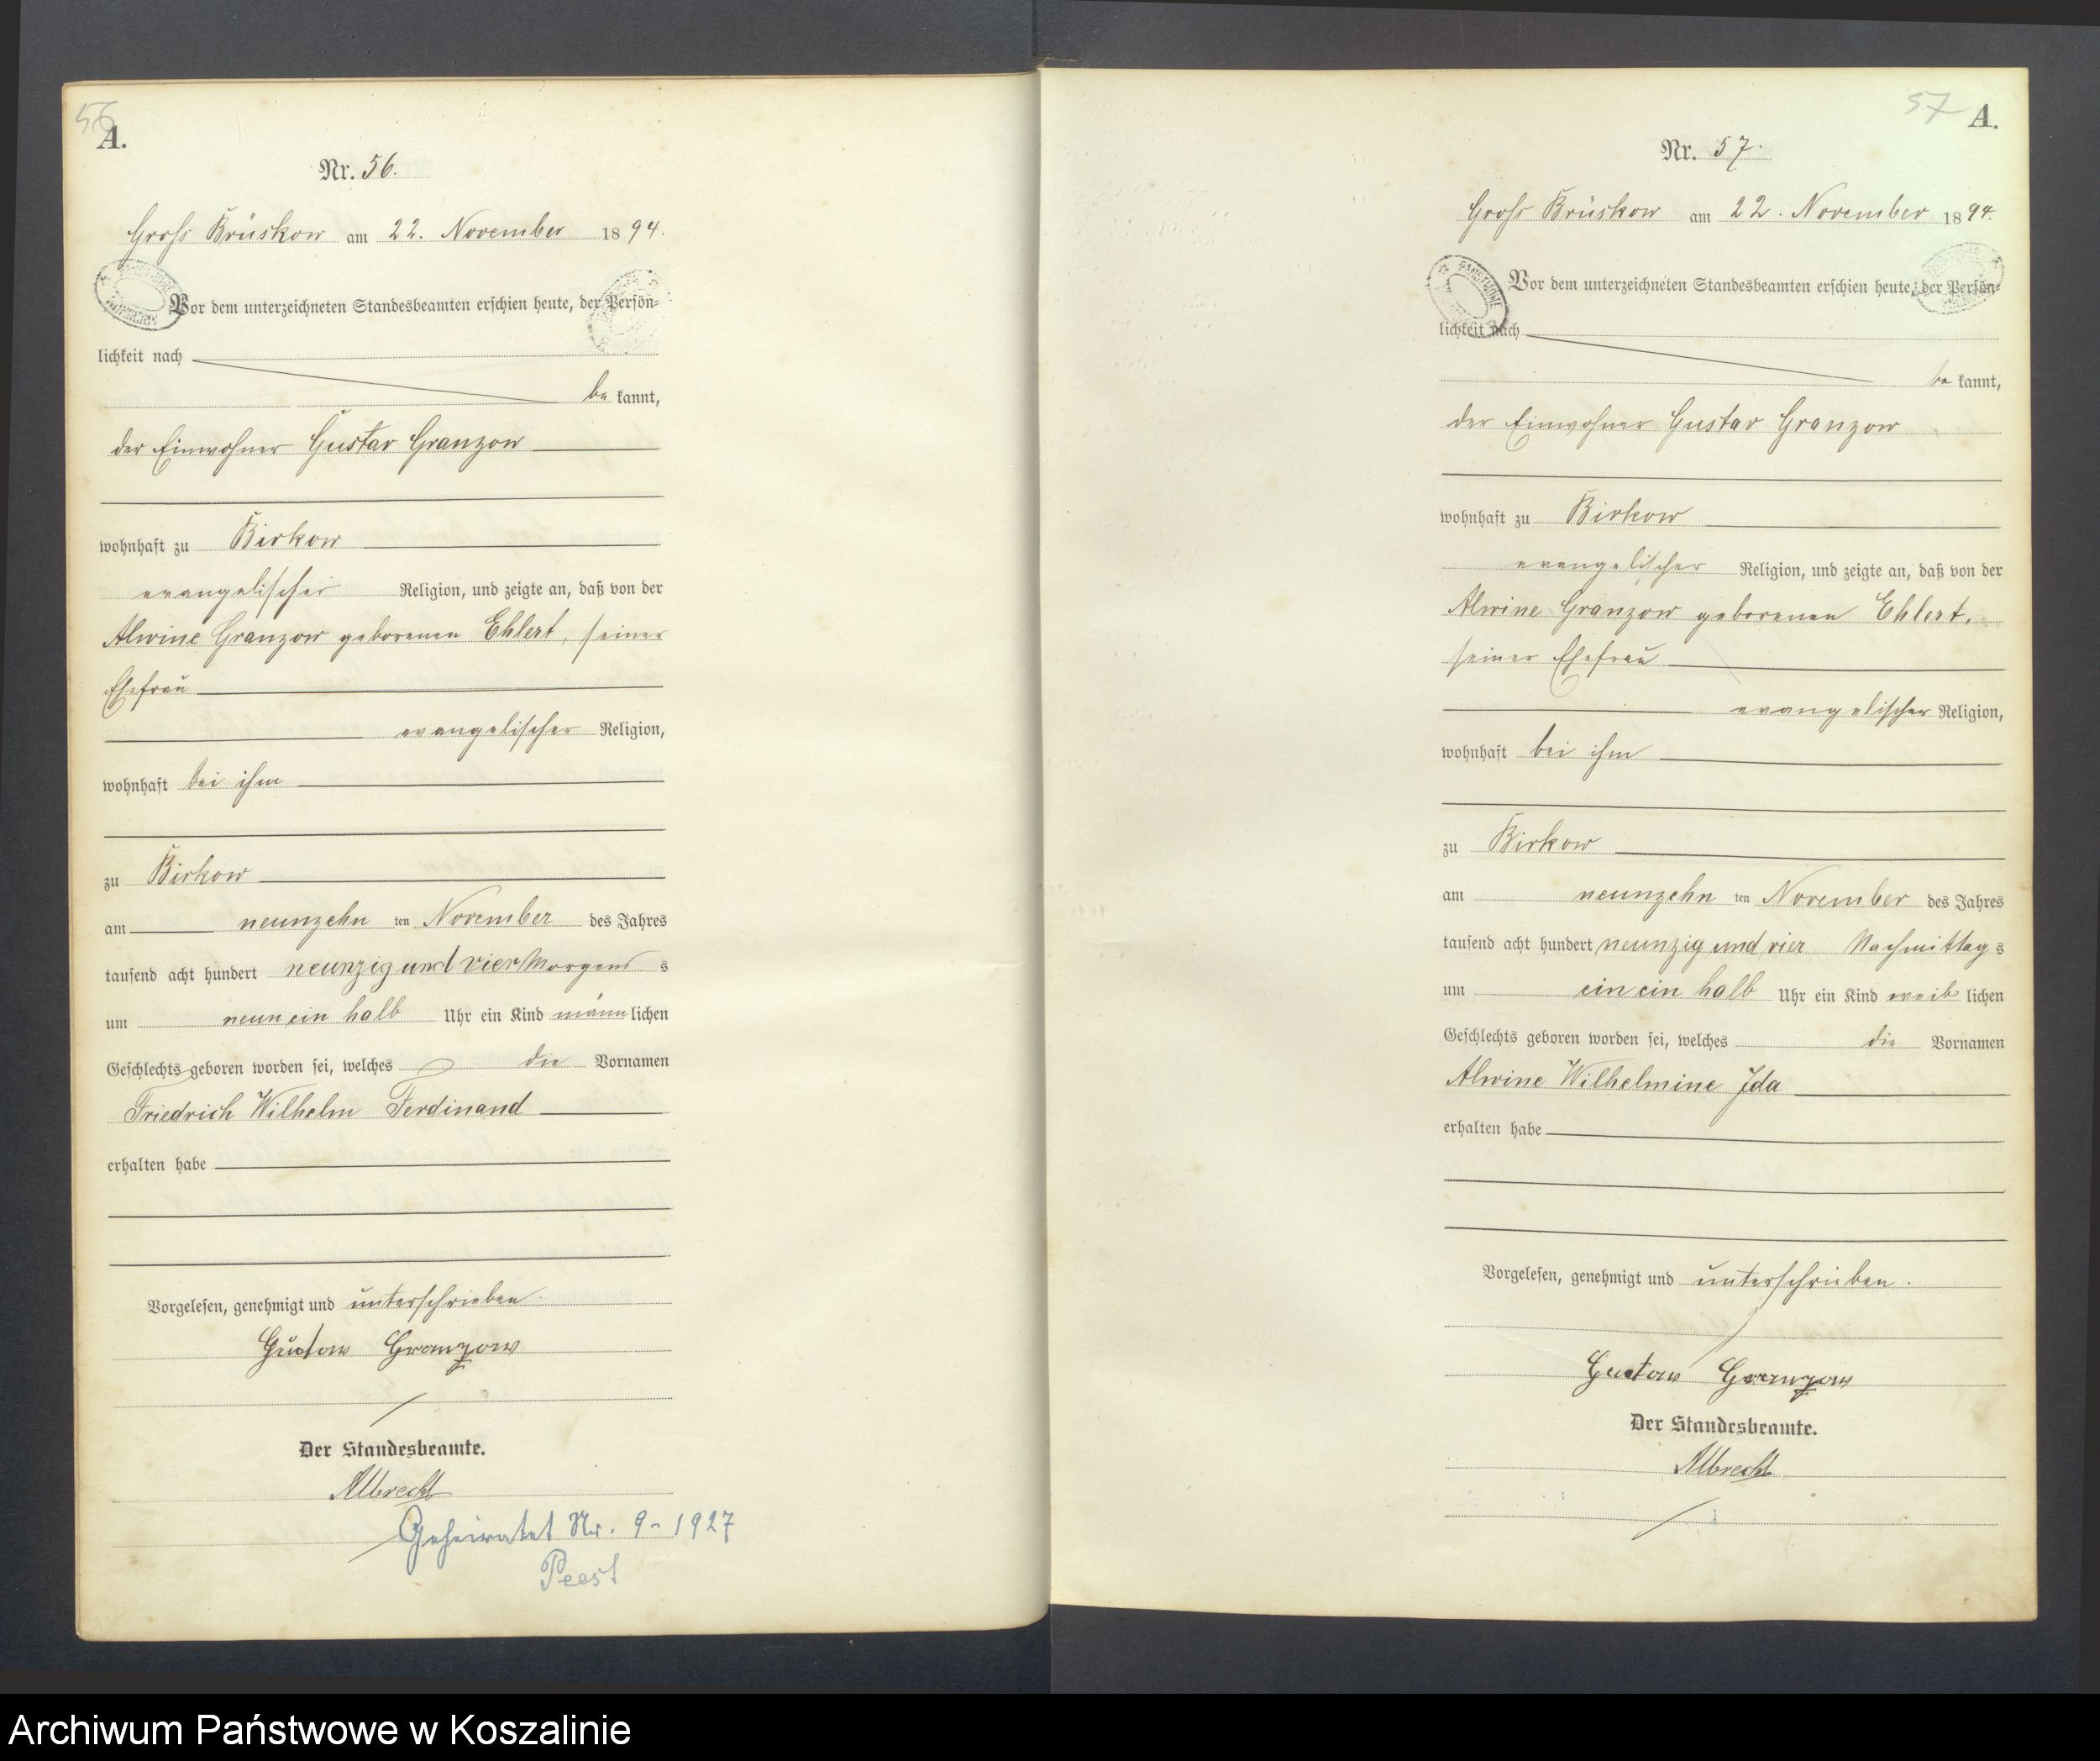 56
A.
Nr. 56.
Gross Brüskow am 22. November 1894.
Vor dem unterzeichneten Standesbeamten erschien heute, der Persön=
lichkeit nach
be kannt,
der Einwohner Gustav Granzow
wohnhaft zu Birkow
evangelischer Religion, und zeigte an, daß von der
Alwine Granzow geborenen Ehlert, seiner
Ehefrau
evangelischer Religion,
wohnhaft bei ihm
zu Birkow
am neunzehn ten November des Jahres
tausend acht hundert neunzig und vier Morgens s
um neun ein halb Uhr ein Kind männlichen
Geschlechts geboren worden sei, welches die Vornamen
Friedrich Wilhelm Ferdinand
erhalten habe
Vorgelesen, genehmigt und unterschrieben.
Gustow Granzow
Der Standesbeamte.
Albrecht
Geheiratet Nr. 9-1927
Peest
57
A.
Nr. 57.
Gross Brüskow am 22. November 1894.
Vor dem unterzeichneten Standesbeamten erschien heute, der Persön=
lichkeit nach
be kannt,
der Einwohner Gustav Granzow
wohnhaft zu Birkow
evangelischer Religion, und zeigte an, daß von der
Alwine Granzow geborenen Ehlert,
seiner Ehefrau
evangelischer Religion,
wohnhaft bei ihm
zu Birkow
am neunzehn ten November des Jahres
tausend acht hundert neunzig und vier Nachmittags
um ein ein halb Uhr ein Kind weiblichen
Geschlechts geboren worden sei, welches die Vornamen
Alwine Wilhelmine Ida
erhalten habe
Vorgelesen, genehmigt und unterschrieben.
Gustow Granzow
Der Standesbeamte.
Albrecht
Archiwum Państwowe w Koszalinie